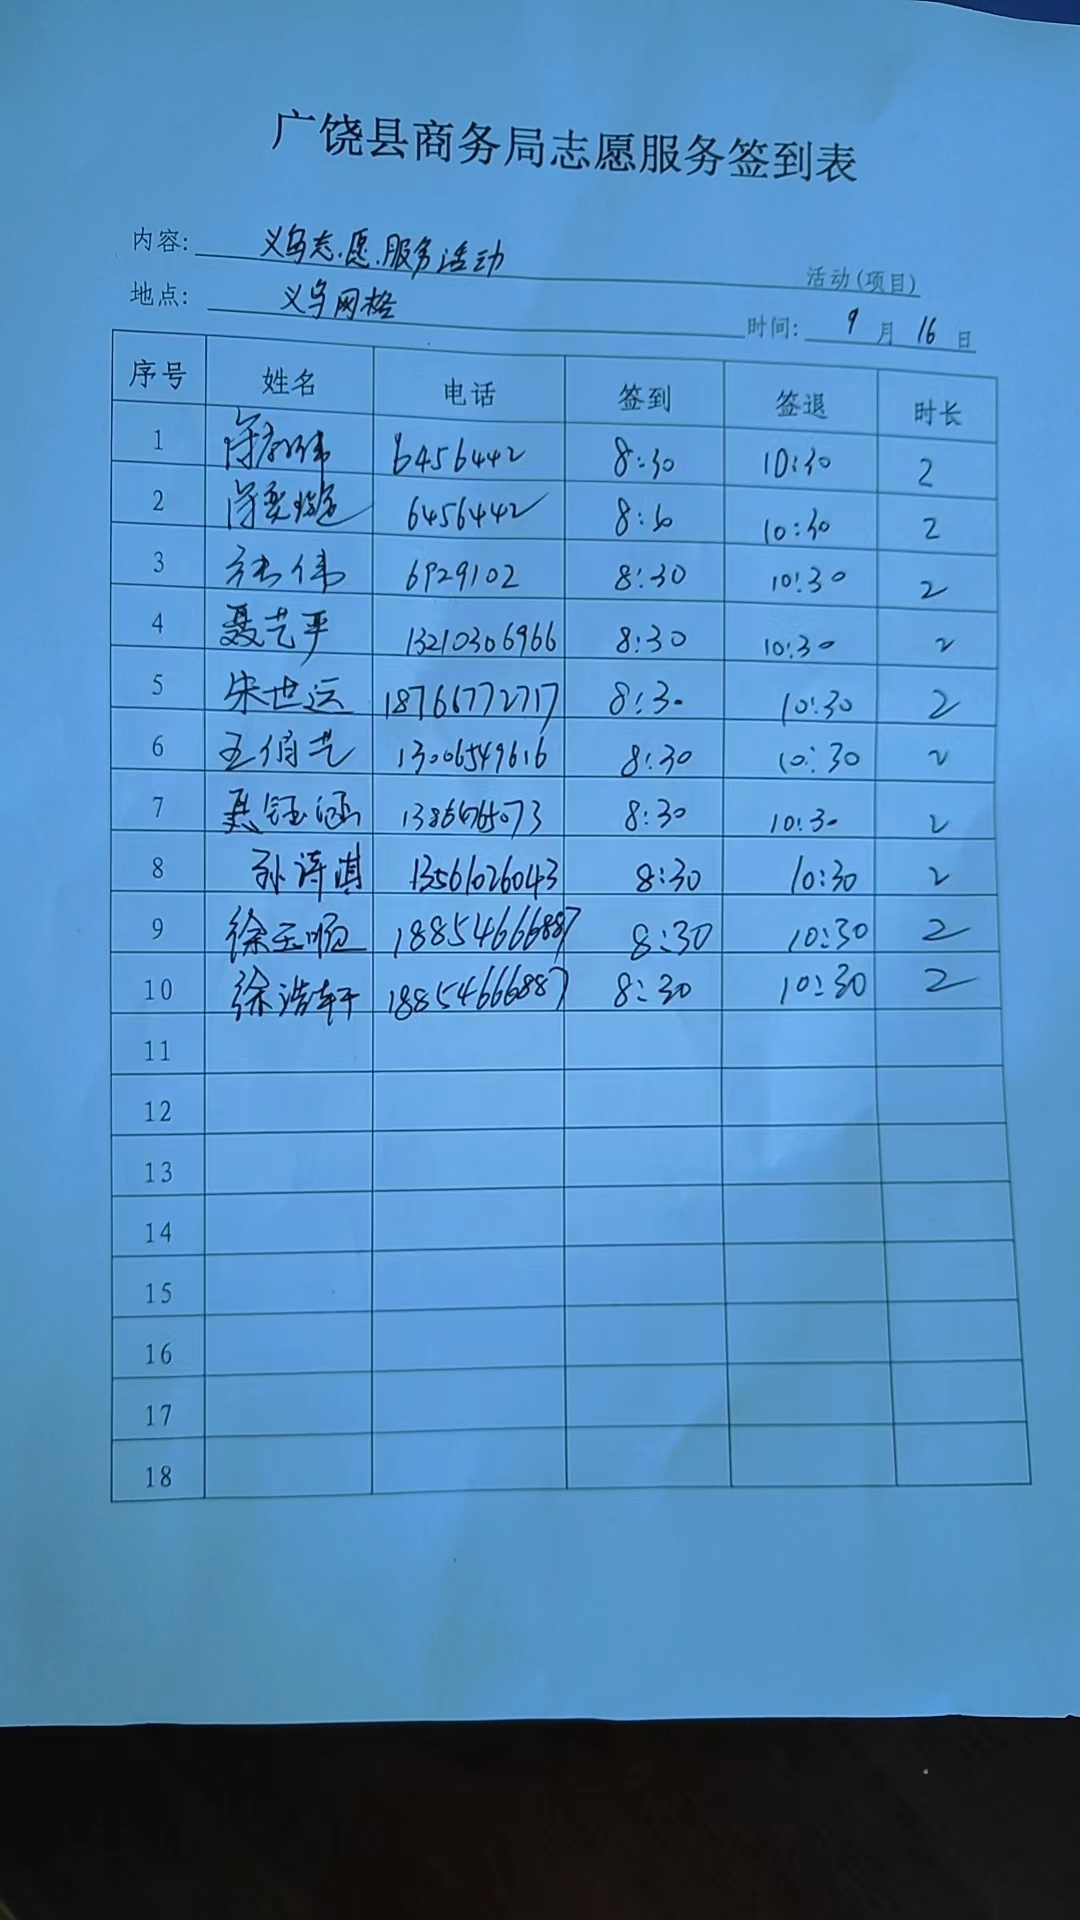 广饶县商务局志愿服务签到表
内容: 义乌志愿服务活动 活动(项目)
地点: 义乌网格 时间: 9 月 16 日
序号 姓名 电话 签到 签退 时长
1 6456442 8:30 10:30 2
2 6456442 8:30 10:30 2
3 张伟 6929102 8:30 10:30 2
4 聂艺平 13210306966 8:30 10:30 2
5 宋世运 18766772717 8:30 10:30 2
6 王俏艺 13006549616 8:30 10:30 2
7 钰涵 8:30 10:30 2
8 孙诗淇 13561026043 8:30 10:30 2
9 徐玉顺 18854666887 8:30 10:30 2
10 徐浩轩 18854666887 8:30 10:30 2
11
12
13
14
15
16
17
18